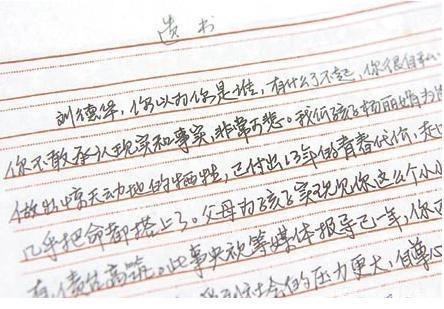 遗书
刘德华，你以为你是谁，有什么了不起，你很自私，
你不敢承认现实和事实，非常可悲。我低孩子杨丽娟为你
做出惊天动地的牺牲，已付出13年的青春代价，
几乎把命都搭上了。父母为孩子实现见你这么个小小
债台高筑。此事央视等媒体报导已一年，你
社会的压力更大，自尊心